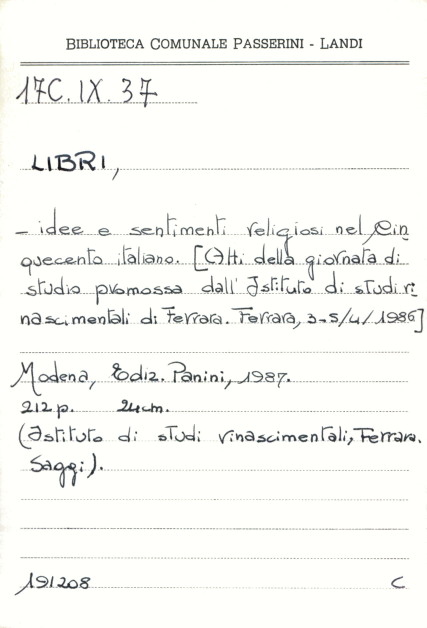 BIBLIOTECA COMUNALE PASSERINI - LANDI
17C.IX.37
LIBRI,
- idee e sentimenti religiosi nel Cin
quecento italiano. [Atti della giornata di
studio promossa dall' Istituto di studi ri
nascimentali di Ferrara. Ferrara, 3-5/4/1986]
Modena, Ediz. Panini, 1987.
212 p. 24 cm.
(Istituto di studi rinascimentali, Ferrara.
Saggi).
191208 C